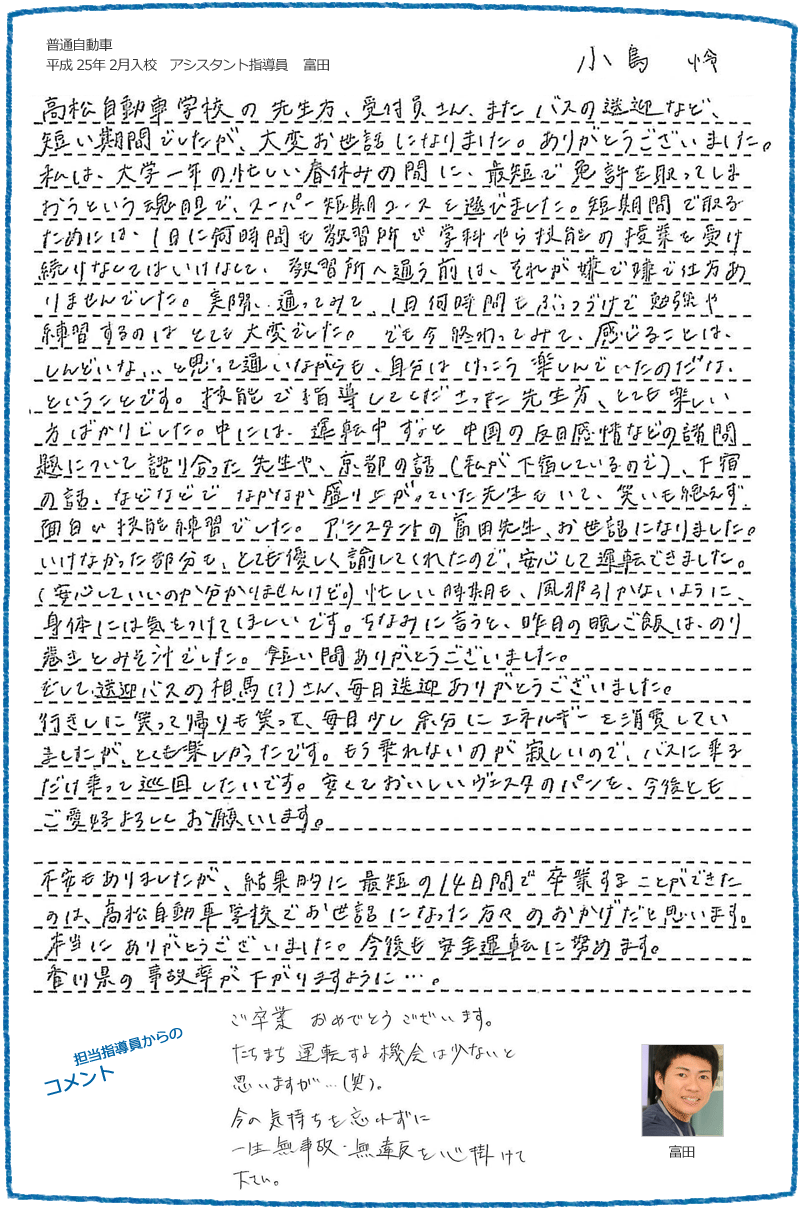 普通自動車
平成25年2月入校　アシスタント指導員　富田
小島 怜
高松自動車学校の先生方、受付員さん、またバスの送迎など、
短い期間でしたが、大変お世話になりました。ありがとうございました。
私は、大学一年の忙しい春休みの間に、最短で免許を取ってしま
おうという魂胆で、スーパー短期コースを選びました。短期間で取る
ためには、1日に何時間も教習所で学科やら技能の授業を受け
続けなくてはいけなくて、教習所へ通う前は、それが嫌で嫌で仕方あ
りませんでした。実際に通ってみて、1日何時間もぶっつづけで勉強や
練習するのはとても大変でした。でも今終わってみて、感じることは、
しんどいな…と思って通いながらも、自分はけっこう楽しんでいたのだな、
ということです。技能で指導してくださった先生方、とても楽しい
方ばかりでした。中には、運転中ずっと中国の反日感情などの諸問
題について語り合った先生や、京都の話(私が下宿しているので)、下宿
の話、などなどでなかなか盛り上がっていた先生もいて、笑いも絶えず、
面白い技能練習でした。アシスタントの富田先生、お世話になりました。
いけなかった部分も、とても優しく諭してくれたので、安心して運転できました。
(安心していいのか分かりませんけど。)忙しい時期も、風邪引かないように、
身体には気をつけてほしいです。ちなみに言うと、昨日の晩ご飯は、のり
巻きとみそ汁でした。短い間ありがとうございました。
そして送迎バスの相馬(?)さん、毎日送迎ありがとうございました。
行きしに笑って帰りも笑って、毎日少し余分にエネルギーを消費してい
ましたが、とても楽しかったです。もう乗れないのが寂しいので、バスに乗る
だけ乗って巡回したいです。安くておいしいヴェスタのパンを、今後とも
ご愛好よろしくお願いします。
不安もありましたが、結果的に最短の14日間で卒業することができた
のは、高松自動車学校でお世話になった方々のおかげだと思います。
本当にありがとうございました。今後も安全運転に努めます。
香川県の事故率が下がりますように…。
担当指導員からの
コメント
ご卒業おめでとうございます。
たちまち運転する機会は少ないと
思いますが…(笑)。
今の気持ちを忘れずに
一生無事故・無違反を心掛けて
下さい。
富田